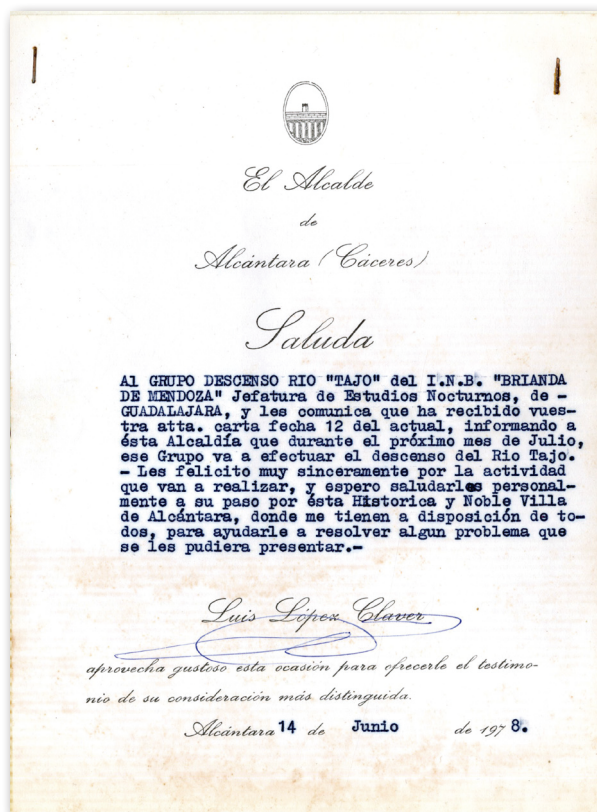 El Alcalde
de
Alcántara (Cáceres)
Saluda
Al GRUPO DESCENSO RIO "TAJO" del I.N.B. "BRIANDA
DE MENDOZA" Jefatura de Estudios Nocturnos, de -
GUADALAJARA, y les comunica que ha recibido vues-
tra atta. carta fecha 12 del actual, informando a
ésta Alcaldía que durante el próximo mes de Julio,
ese Grupo va a efectuar el descenso del Rio Tajo.
- Les felicito muy sinceramente por la actividad
que van a realizar, y espero saludarles personal-
mente a su paso por ésta Historica y Noble Villa
de Alcántara, donde me tienen a disposición de to-
dos, para ayudarle a resolver algun problema que
se les pudiera presentar.-
Luis López Claver
aprovecha gustoso esta ocasión para ofrecerle el testimo-
nio de su consideración más distinguida.
Alcántara 14 de Junio de 1978.